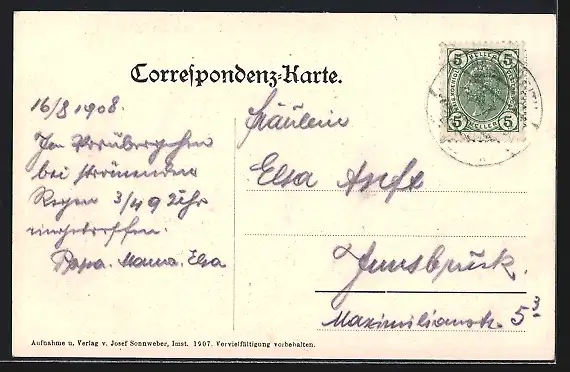 Correspondenz-Karte.
5 HELLER 5
5 HELLER 5
16/8 1908.
Im Vorübergehen
bei strömenden
Regen 3/4 9 Uhr
eingetroffen.
Papa. Mama. Elsa
Fräulein
Elsa
Innsbruck.
Maximilianstr. 5 3.
Aufnahme u. Verlag v. Josef Sonnweber, Imst. 1907. Vervielfältigung vorbehalten.